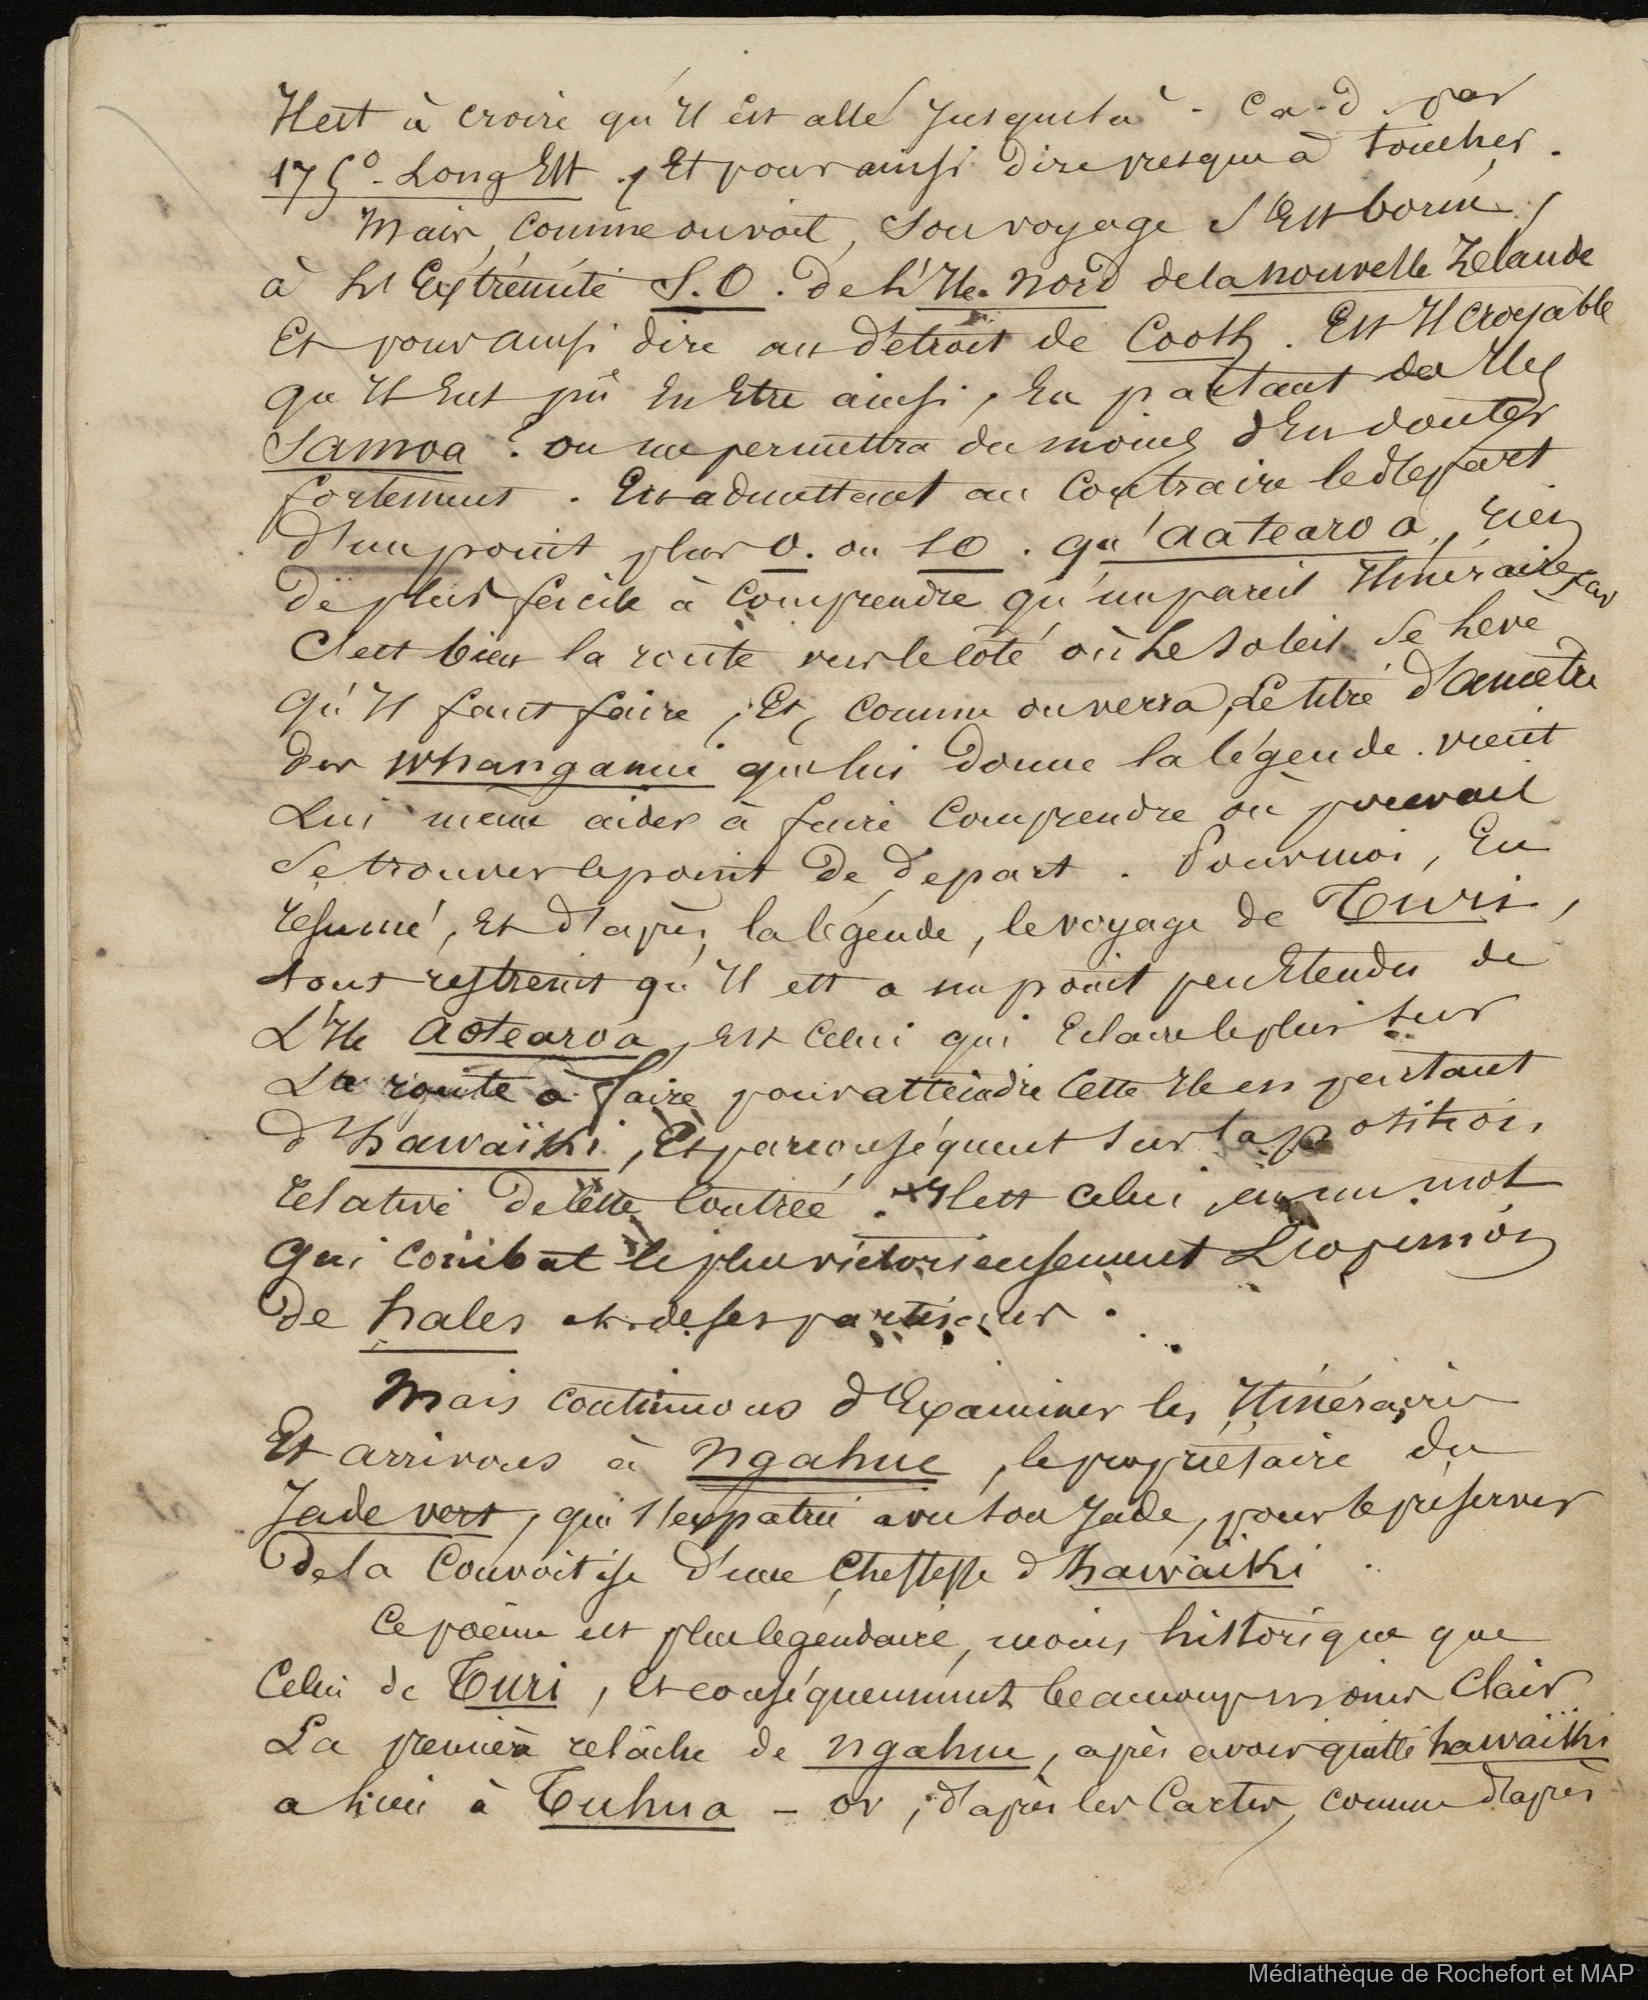 Il est à croire qu'il est allé jusques là - c.a.d. par
175° Long Est, et pour ainsi dire presque à toucher.
Mais, comme on voit, son voyage s'est borné
à l'extrémité S.O. de l'Ile Nord de la Nouvelle Zélande
et pour ainsi dire au détroit de Cook. Est il croyable
qu'il eut pû en être ainsi, en partant des Iles
Samoa? on me permettra du moins d'en douter
fortement. En admettant au contraire le départ
d'un point plus O. ou SO. qu'Aotearoa, rien
de plus facile à comprendre qu'un pareil Itinéraire, car
c'est bien la route vers le côté où le soleil se lève
qu'il faut faire, et, comme on verra, le titre d'ancêtre
des Whanganui que lui donne la légende vient
lui même aider à faire comprendre où pouvait
se trouver le point de départ. Pour moi, en
résumé, et d'après la légende, le voyage de Turi,
tout restreint qu'il est a un point peu étendu de
l'Ile Aotearoa, est celui qui éclaire le plus sur
la route à faire pour atteindre cette Ile en partant
d'hawaïki, et par conséquent sur la position
relative de cette contrée. Il est celui, en un mot
qui combat le plus victorieusement l'opinion
de hales et de ses partisans.
Mais continuons d'examiner les Itinéraires
et arrivons à Ngahue, le propriétaire du
Jade vert, qui s'expatrie avec son Jade, pour le préserver
de la convoitise d'une cheffesse d'hawaïki.
Ce poème est plus légendaire, moins historique que
celui de Turi, et conséquemment beaucoup moins clair
La première relâche de Ngahue, après avoir quitté hawaïki
a lieu à Tuhua - or, d'après les Cartes, comme d'après
Médiathèque de Rochefort et MAP